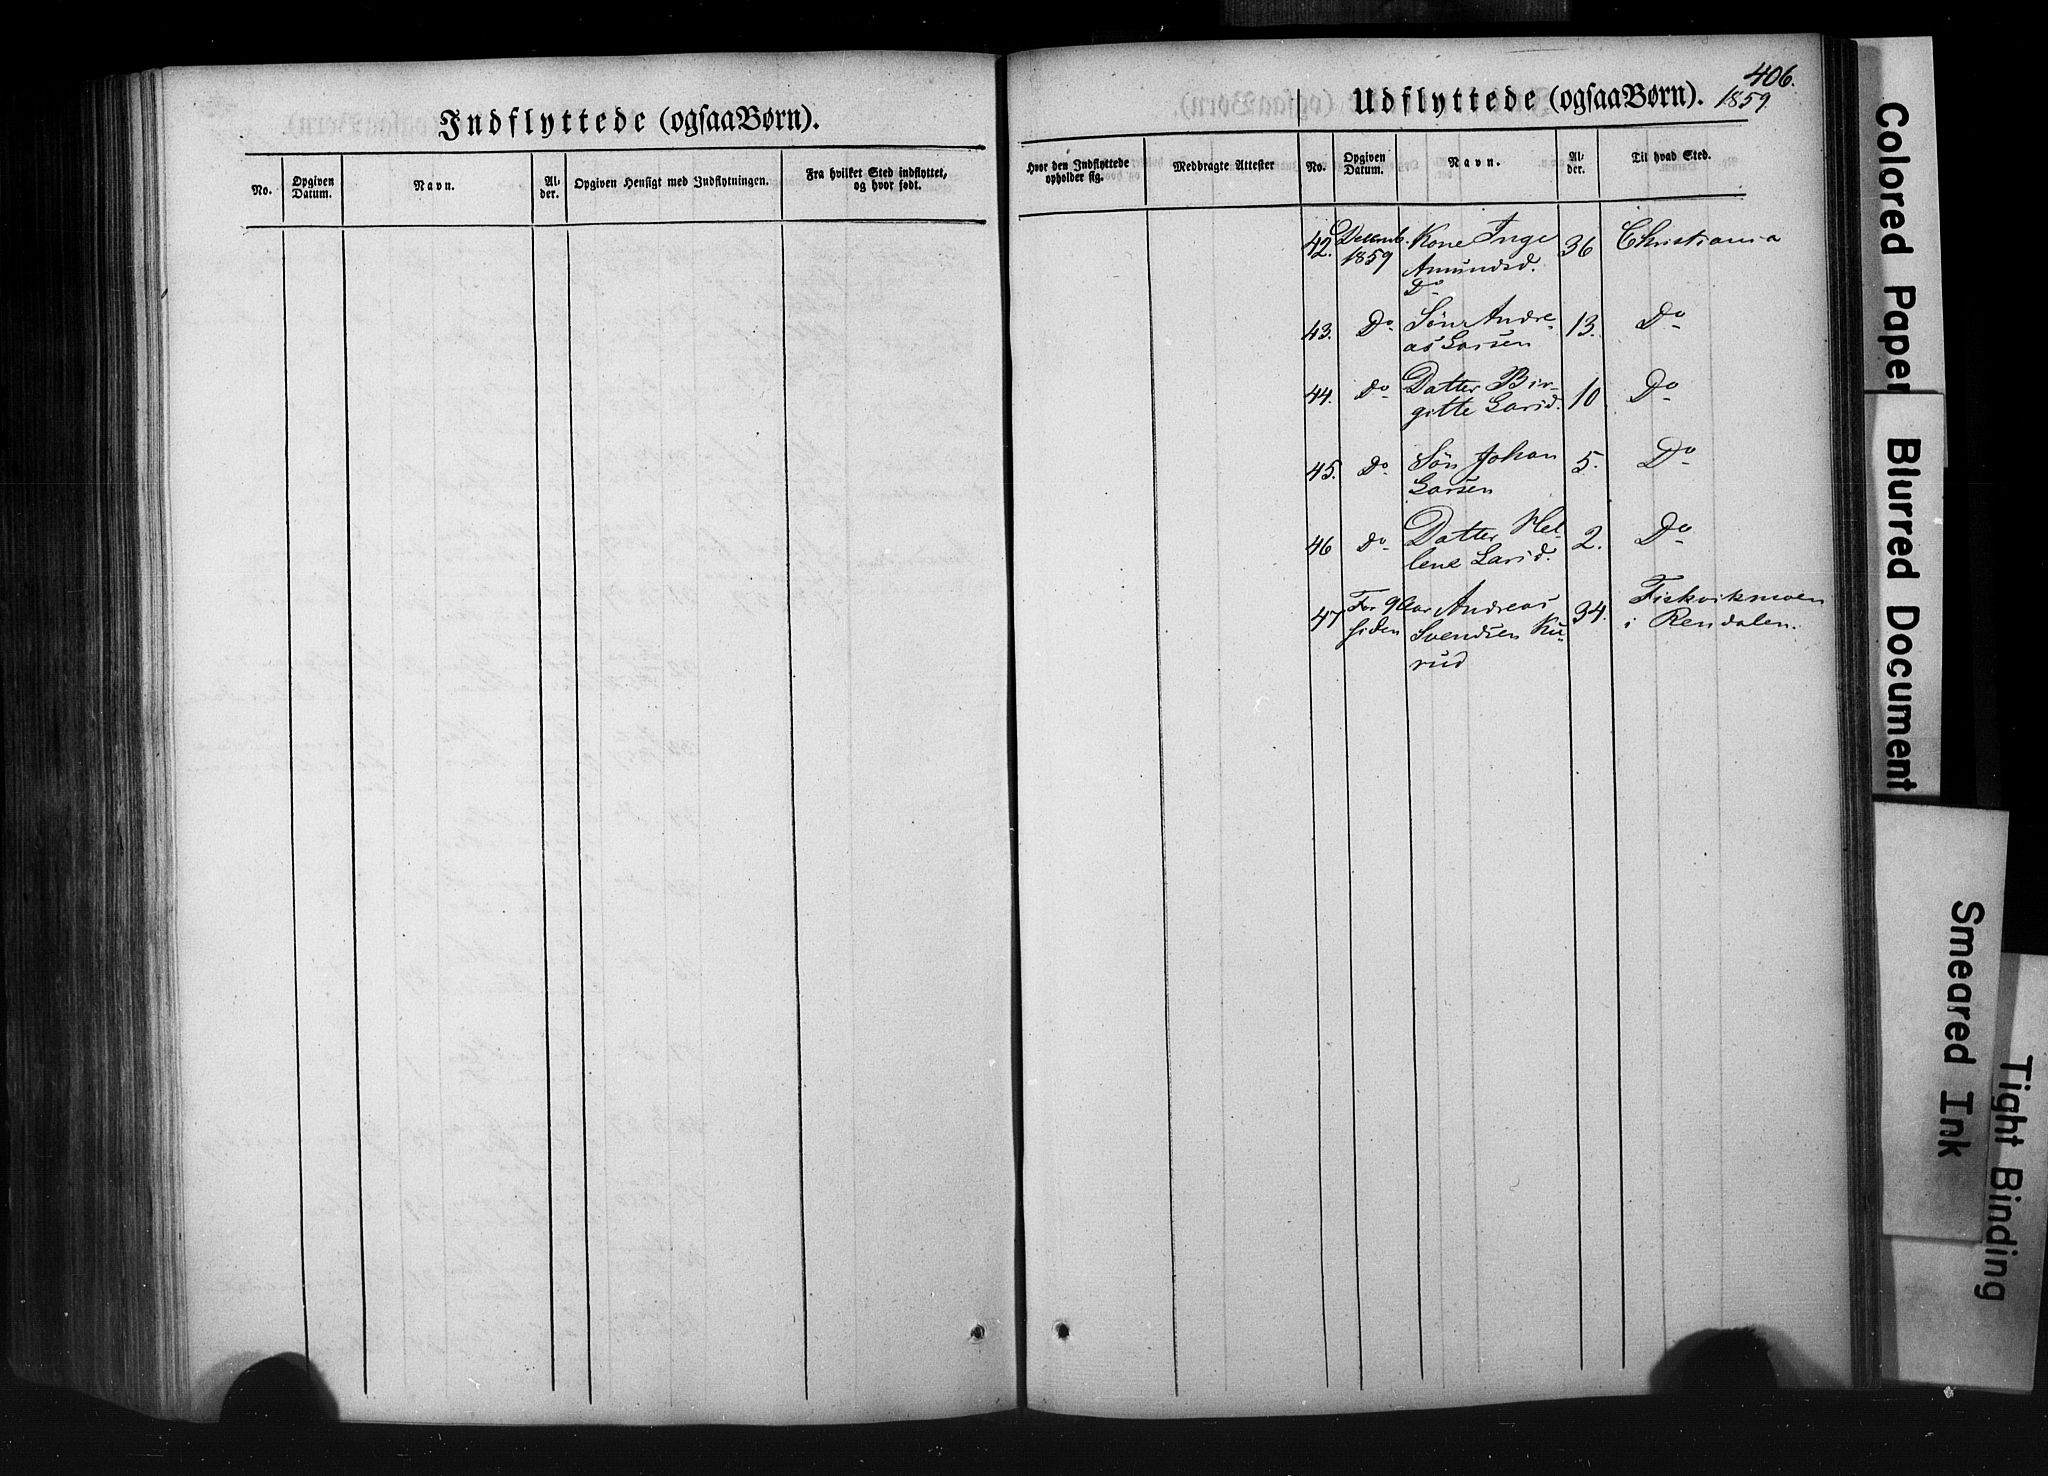 Indflyttede (ogsaa Børn).
No.
Opgiven Datum.
Navn.
Al-
der.
Opgiven Hensigt med Indflytningen.
Fra hvilket Sted indflyttet,
og hvor født.
406.
Udflyttede (ogsaa Børn).
1859
Hvor den Indflyttede
opholder sig.
Medbragte Attester
No.
Opgiven
Datum.
Navn.
Al-
der.
Til hvad Sted.
42. Decemb. Kone Inge 36 Christiania
1859 Amundsd.
Do
43. Do Søn Andre- 13. Do
as Larsen
44. Do Datter Bir- 10 Do
gitte Larsd.
45. Do Søn Johan 5. Do
Larsen
46 Do Datter Hel- 2. Do
lene Larsd.
47 For 9 Aar Andreas 34. Fiskvikmoen
siden Svendsen Ku- i Rendalen.
rud
Colored Paper
Blurred Document
Smeared Ink
Tight Binding